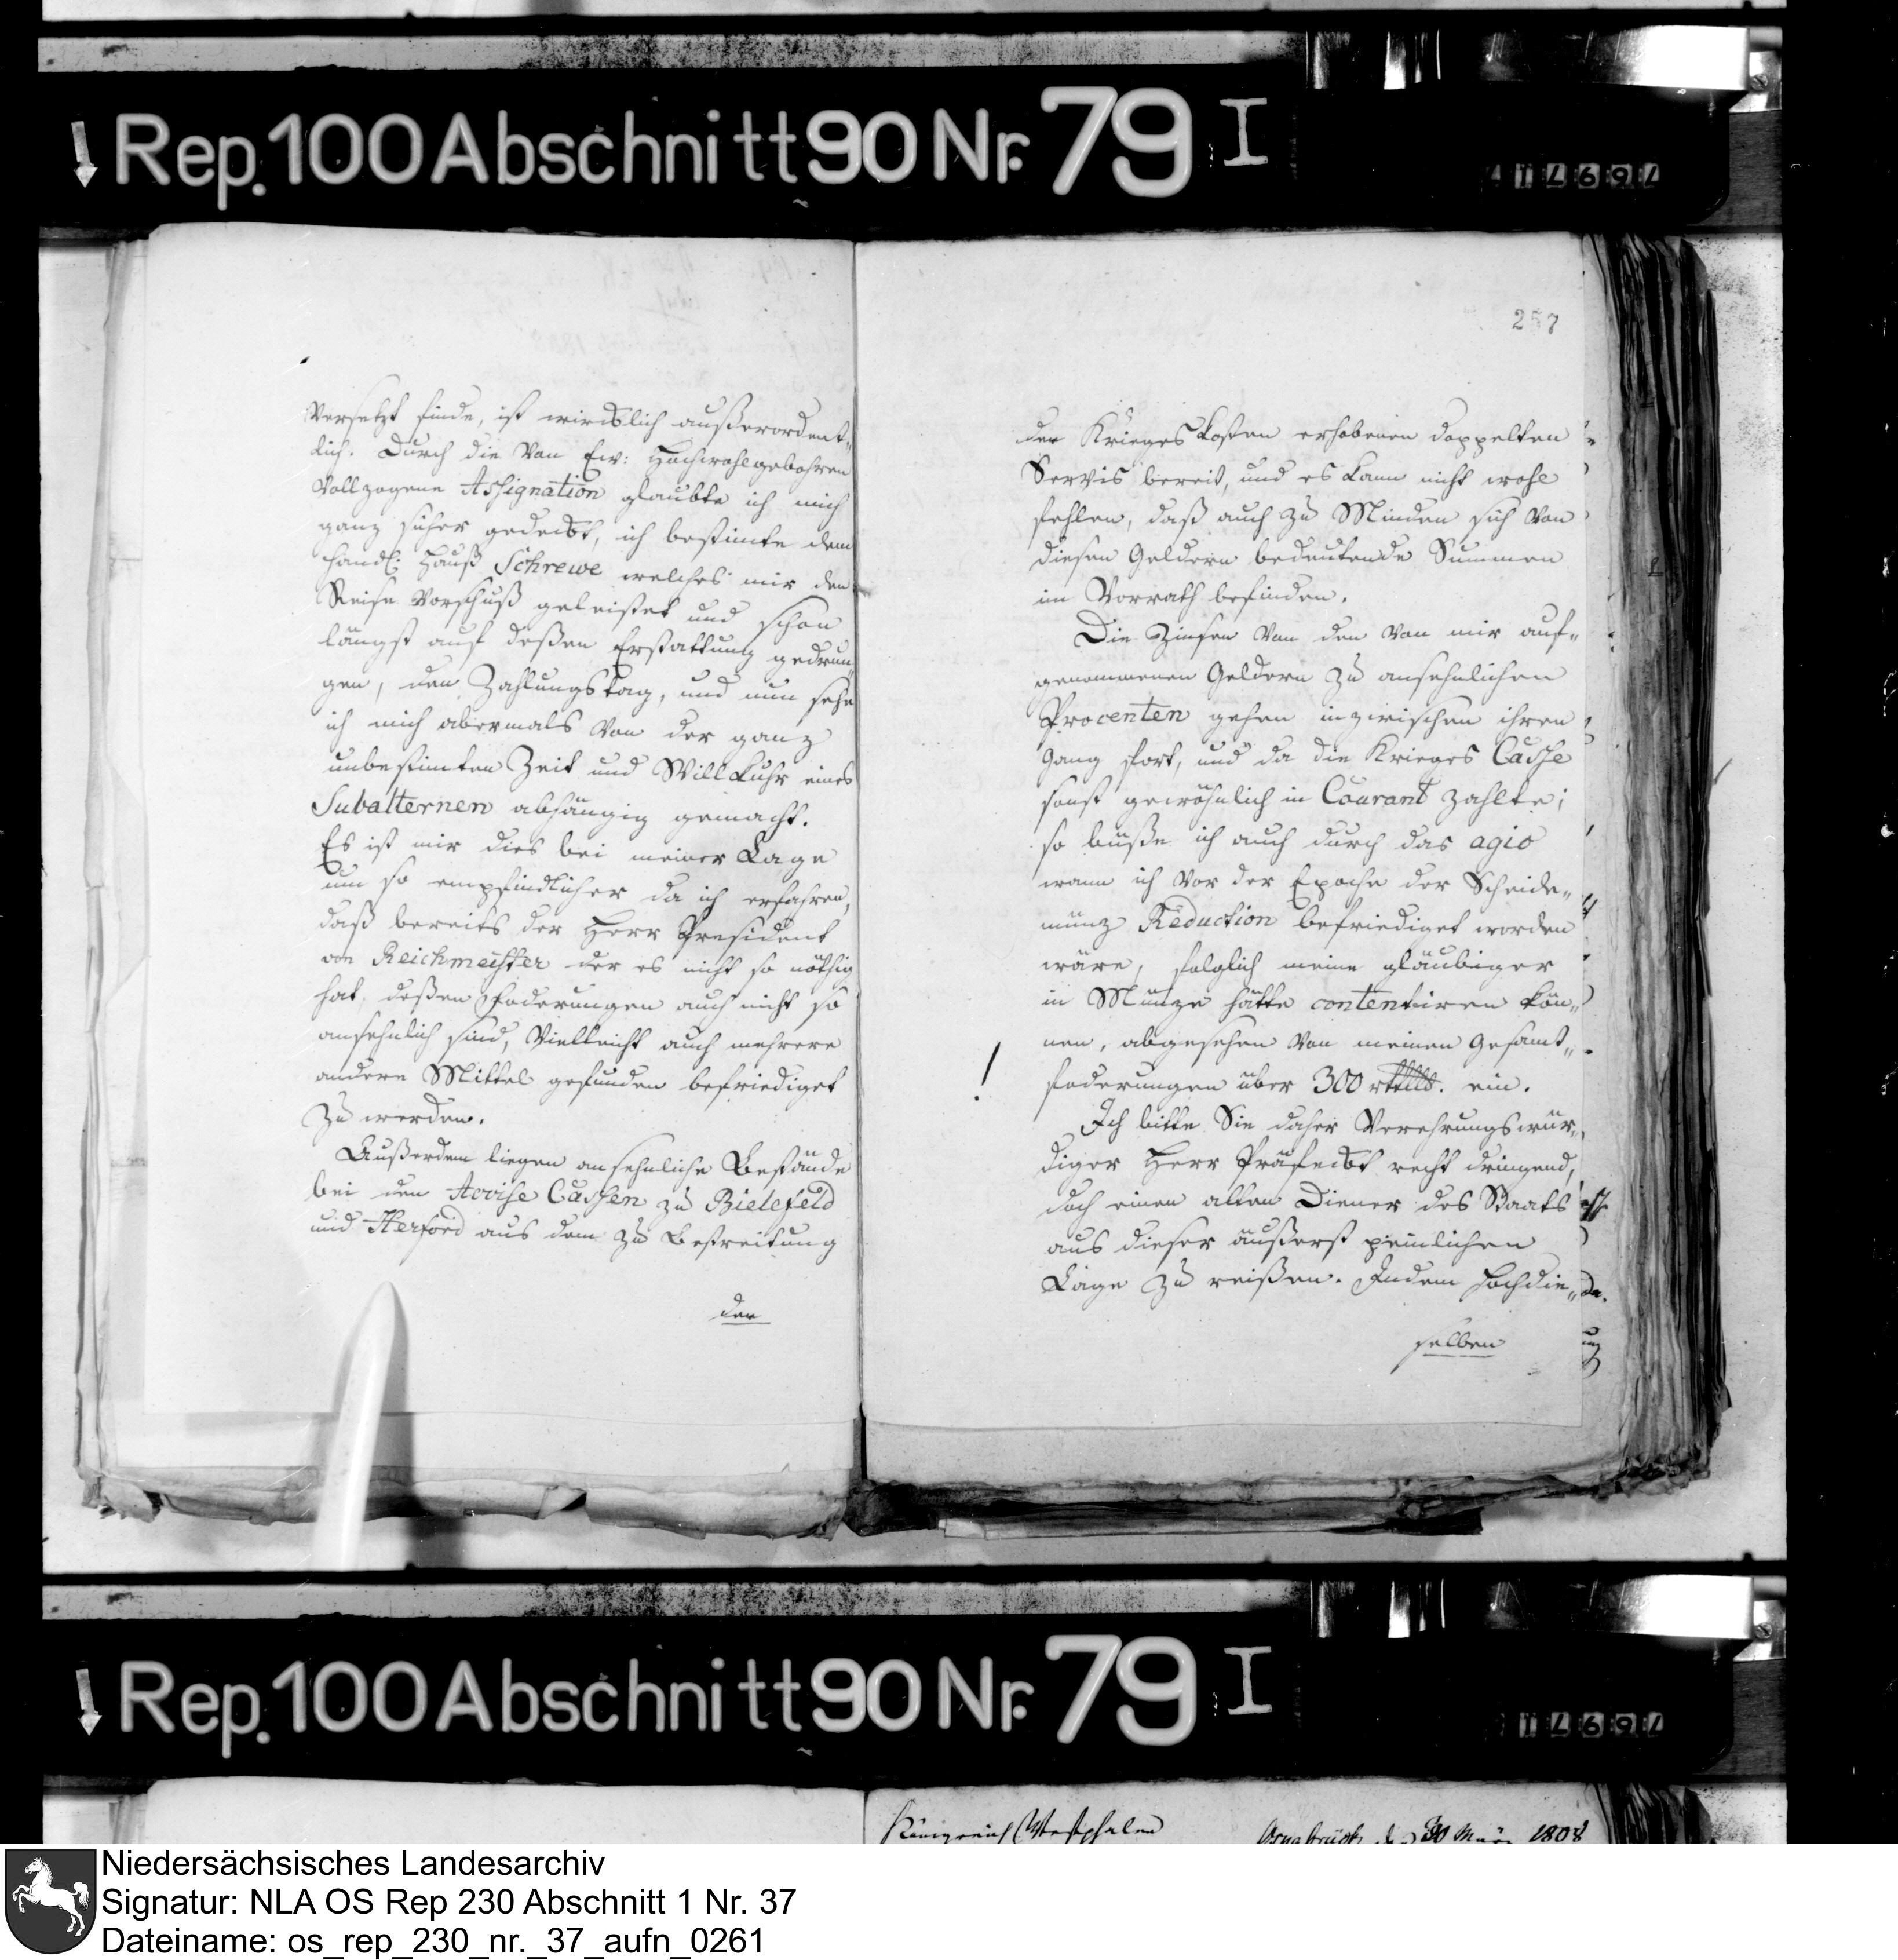 Rep. 100 Abschnitt 90 Nr. 79 I
11697
257
versetzt finde, ist wircklich außerordent-
lich. Durch die von Ew: Hochwohlgebohren
vollzogene Assignation glaubte ich mich
ganz sicher gedeckt, ich bestimte dem
Handl: Hauß Schrewe welches mir den
Reise Vorschuß geleistet und schon
längst auf deßen Erstattung gedrun-
gen, den Zahlungstag, und nun sehe
ich mich abermals von der ganz
unbestimten Zeit und Willkuhr eines
Subalternen abhängig gemacht.
Es ist mir dies bei meiner Lage
um so empfindlicher da ich erfahren,
daß bereits der Herr President
von Reichmeister der es nicht so nöthig
hat, deßen Foderungen auch nicht so
ansehnlich sind, vielleicht auch mehrere
andere Mittel gefunden befriediget
zu werden.
Außerdem liegen ansehnliche Bestände
bei den Accise Cassen zu Bielefeld
und Herford aus dem zu Bestreitung
der
der Krieges Kosten erhobenen doppelten
Servis bereit, und es kann nicht wohl
fehlen, daß auch zu Minden sich von
diesen Geldern bedeutende Summen
im Vorrath befinden.
Die Zinsen von den von mir auf-
genommenen Geldern zu ansehnlichen
Procenten gehen inzwischen ihren
Gang fort, und da die Krieges Casse
sonst gewöhnlich in Courant zahlte;
so buße ich auch durch das agio
wann ich vor der Epoche der Scheide-
münz Reduction befriediget worden
wäre, folglich meine gläubiger
in Münze hätte contentiren kön-
nen, abgesehen von meinen Gesamt-
foderungen über 300 rthlr. ein.
!
Ich bitte Sie daher Verehrungswür-
diger Herr Präfeckt recht dringend,
doch einen alten Diener des Staats
aus dieser äußerst peinlichen
Lage zu reißen. Indem Hochdie-
selben
Rep. 100 Abschnitt 90 Nr. 79 I
11697
Königreich Westphalen
Osnabrück den 30 März 1808
Niedersächsisches Landesarchiv
Signatur: NLA OS Rep 230 Abschnitt 1 Nr. 37
Dateiname: os_rep_230_nr._37_aufn_0261